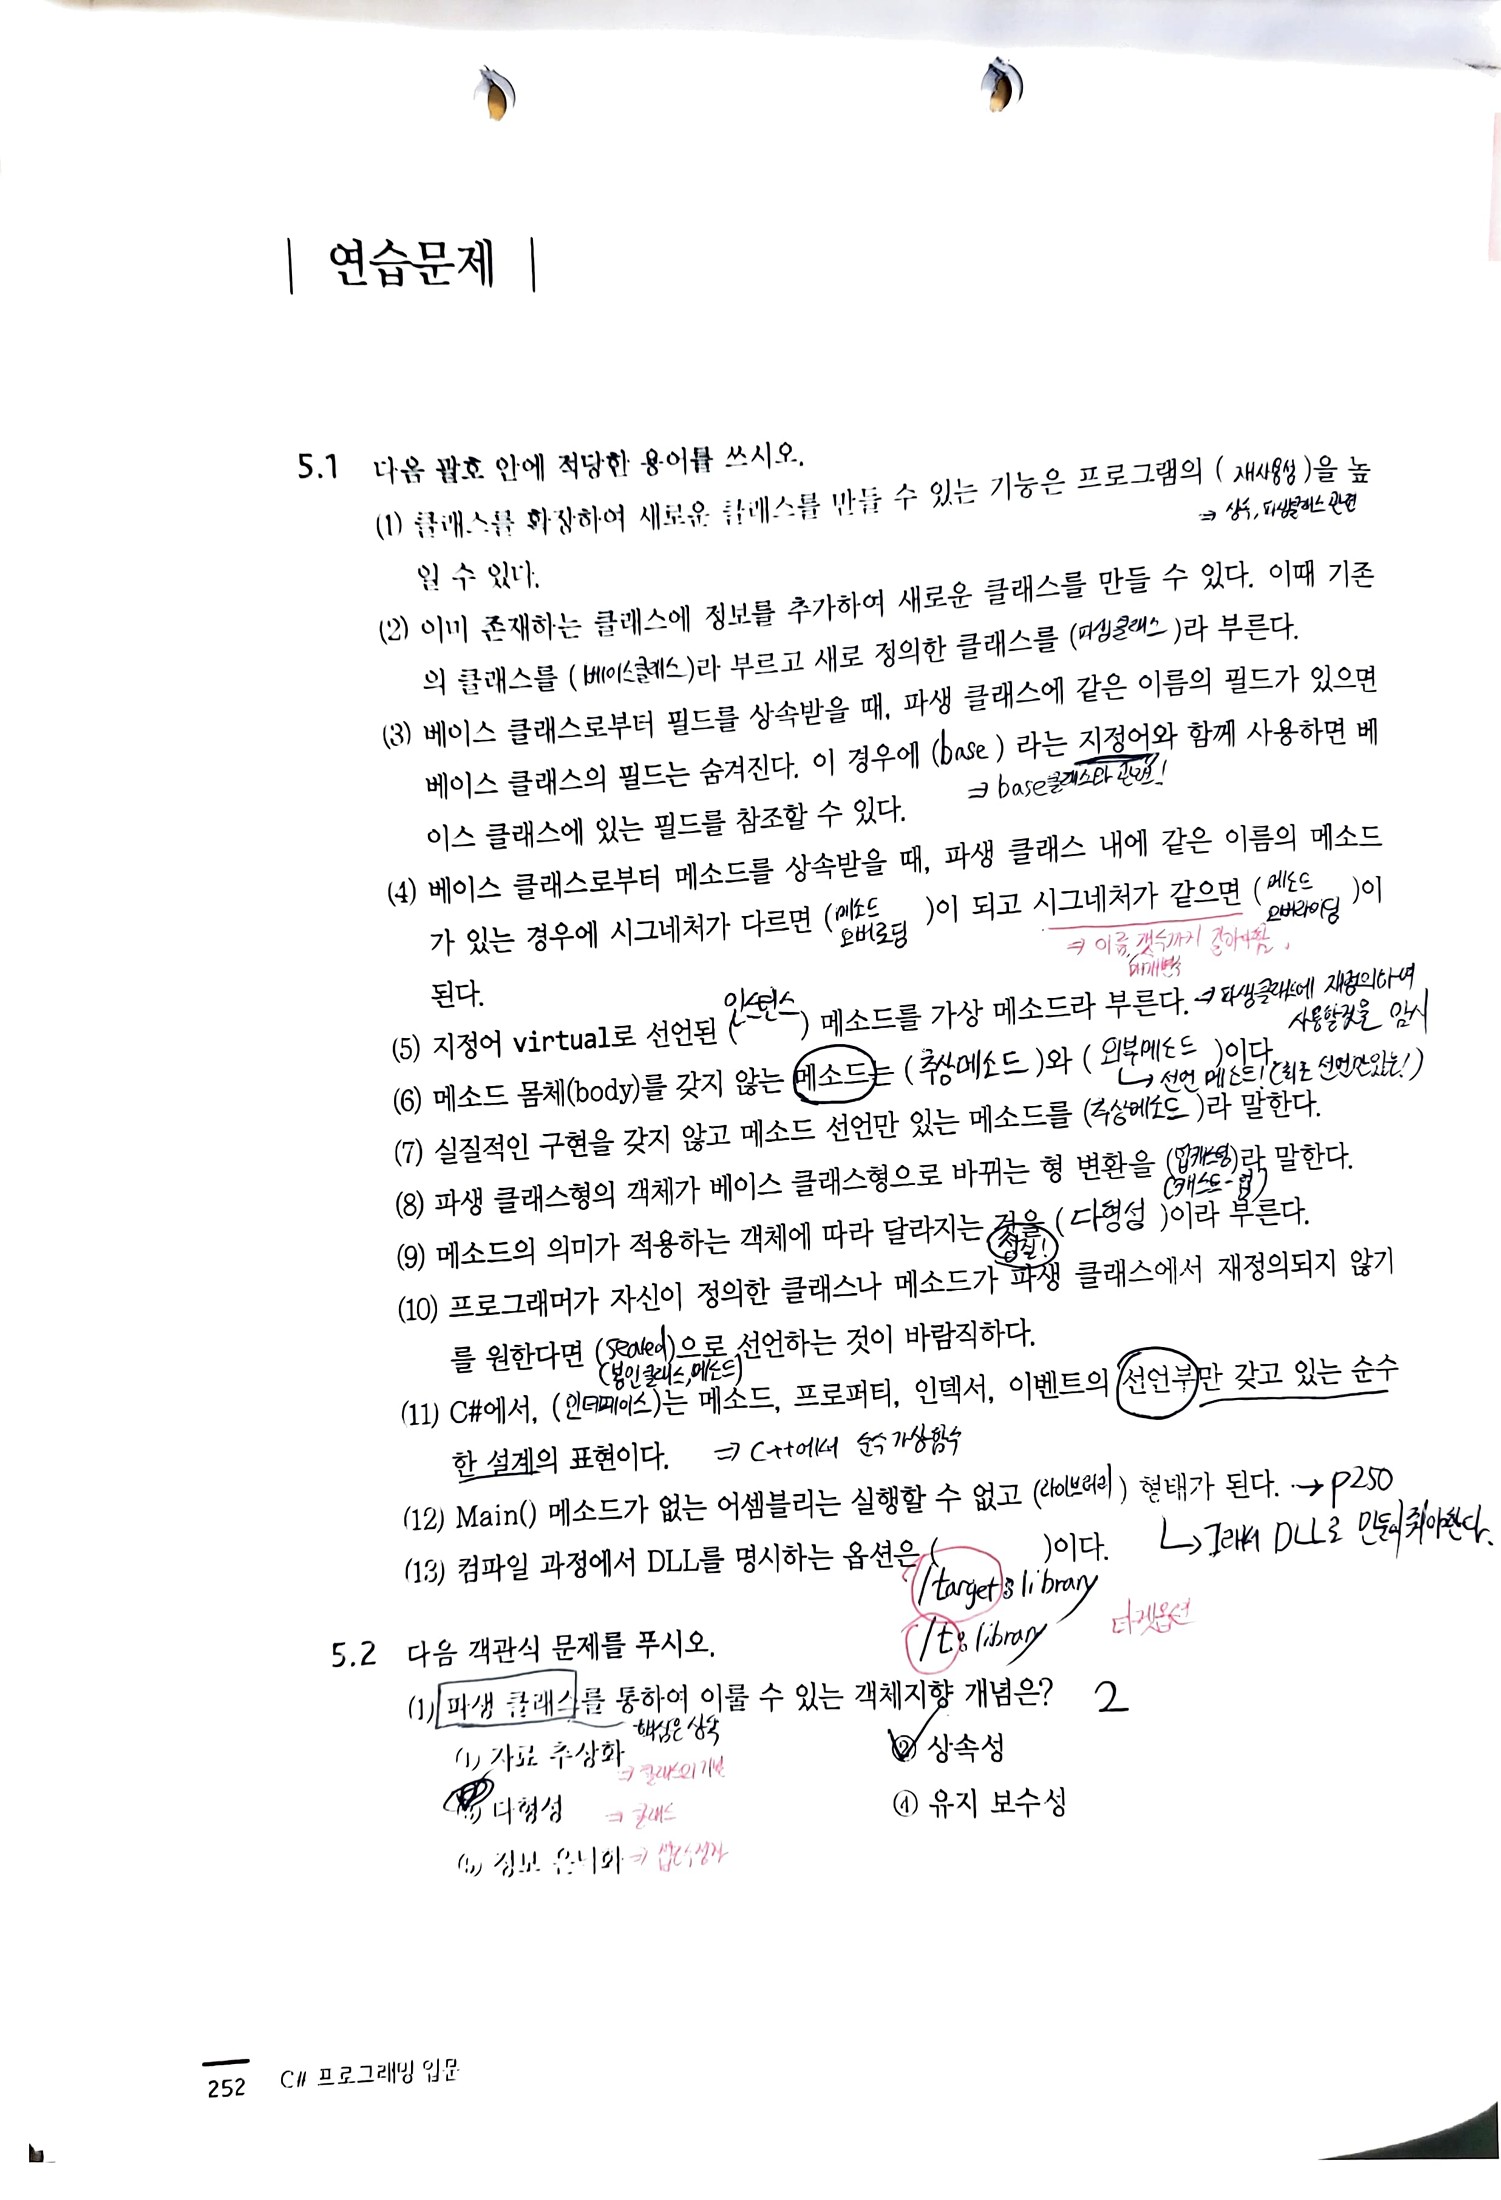 연습문제
5.1 다음 괄호 안에 적당한 용어를 쓰시오.
(1) 클래스를 확장하여 새로운 클래스를 만들 수 있는 기능은 프로그램의 ( 재사용성 )을 높
⇒ 상속, 파생클래스 관련
일 수 있다.
(2) 이미 존재하는 클래스에 정보를 추가하여 새로운 클래스를 만들 수 있다. 이때 기존
의 클래스를 (베이스클래스)라 부르고 새로 정의한 클래스를 (파생클래스)라 부른다.
(3) 베이스 클래스로부터 필드를 상속받을 때, 파생 클래스에 같은 이름의 필드가 있으면
베이스 클래스의 필드는 숨겨진다. 이 경우에 (base) 라는 지정어와 함께 사용하면 베
⇒ base클래스와 관련!
이스 클래스에 있는 필드를 참조할 수 있다.
(4) 베이스 클래스로부터 메소드를 상속받을 때, 파생 클래스 내에 같은 이름의 메소드
가 있는 경우에 시그네처가 다르면 (메소드 오버로딩)이 되고 시그네처가 같으면 (메소드 오버라이딩)이
⇒ 이름, 갯수까지
매개변수
된다.
(5) 지정어 virtual로 선언된 (인스턴스) 메소드를 가상 메소드라 부른다. → 파생클래스에 재정의하여
사용할것을 암시
(6) 메소드 몸체(body)를 갖지 않는 메소드는 (추상메소드)와 ( 외부메소드 )이다.
↳ 선언 메소드! 선언만있는!)
(7) 실질적인 구현을 갖지 않고 메소드 선언만 있는 메소드를 (추상메소드)라 말한다.
(8) 파생 클래스형의 객체가 베이스 클래스형으로 바뀌는 형 변환을 (업캐스팅)라 말한다.
(캐스트-업)
(9) 메소드의 의미가 적용하는 객체에 따라 달라지는 것을 (다형성)이라 부른다.
성질!
(10) 프로그래머가 자신이 정의한 클래스나 메소드가 파생 클래스에서 재정의되지 않기
를 원한다면 (sealed)으로 선언하는 것이 바람직하다.
(봉인클래스,메소드)
(11) C#에서, (인터페이스)는 메소드, 프로퍼티, 인덱서, 이벤트의 선언부만 갖고 있는 순수
한 설계의 표현이다. ⇒ C++에서 순수가상함수
(12) Main() 메소드가 없는 어셈블리는 실행할 수 없고 (라이브러리) 형태가 된다. → p250
↳ 그래서 DLL로 만들어줘야한다.
(13) 컴파일 과정에서 DLL를 명시하는 옵션은 ( )이다.
/target:library
/t:library 타겟옵션
5.2 다음 객관식 문제를 푸시오.
(1) 파생 클래스를 통하여 이룰 수 있는 객체지향 개념은? 2
핵심은 상속
① 자료 추상화 ⇒ 클래스의기본
② 상속성
③ 다형성 ⇒ 클래스
④ 유지 보수성
⑤ 정보 은닉화 ⇒
252 C# 프로그래밍 입문